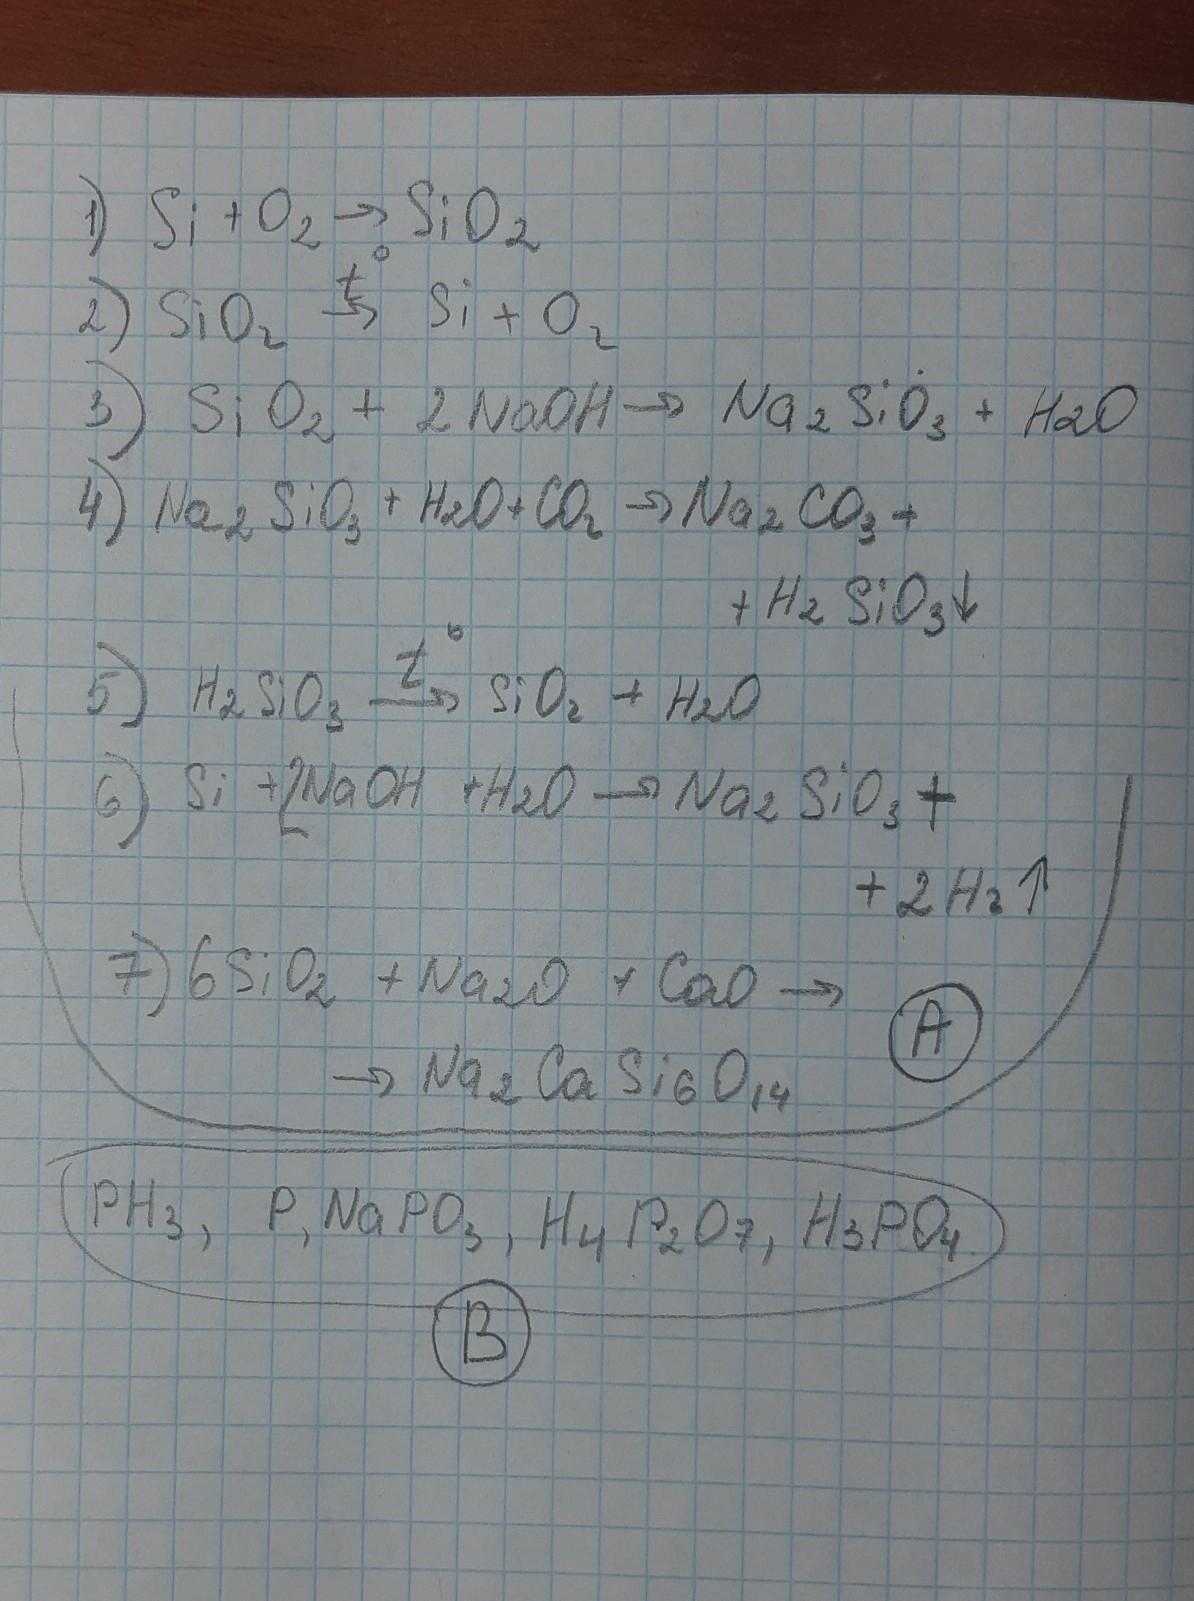 1) Si + O₂ → SiO₂
2) SiO₂ t° → Si + O₂
3) SiO₂ + 2NaOH → Na₂SiO₃ + H₂O
4) Na₂SiO₃ + H₂O + CO₂ → Na₂CO₃ +
+ H₂SiO₃↓
5) H₂SiO₃ t° → SiO₂ + H₂O
6) Si + 2NaOH + H₂O → Na₂SiO₃ +
+ 2H₂↑
7) 6SiO₂ + Na₂O + CaO →
→ Na₂CaSi₆O₁₄
A
PH₃, P, NaPO₃, H₄P₂O₇, H₃PO₄
B